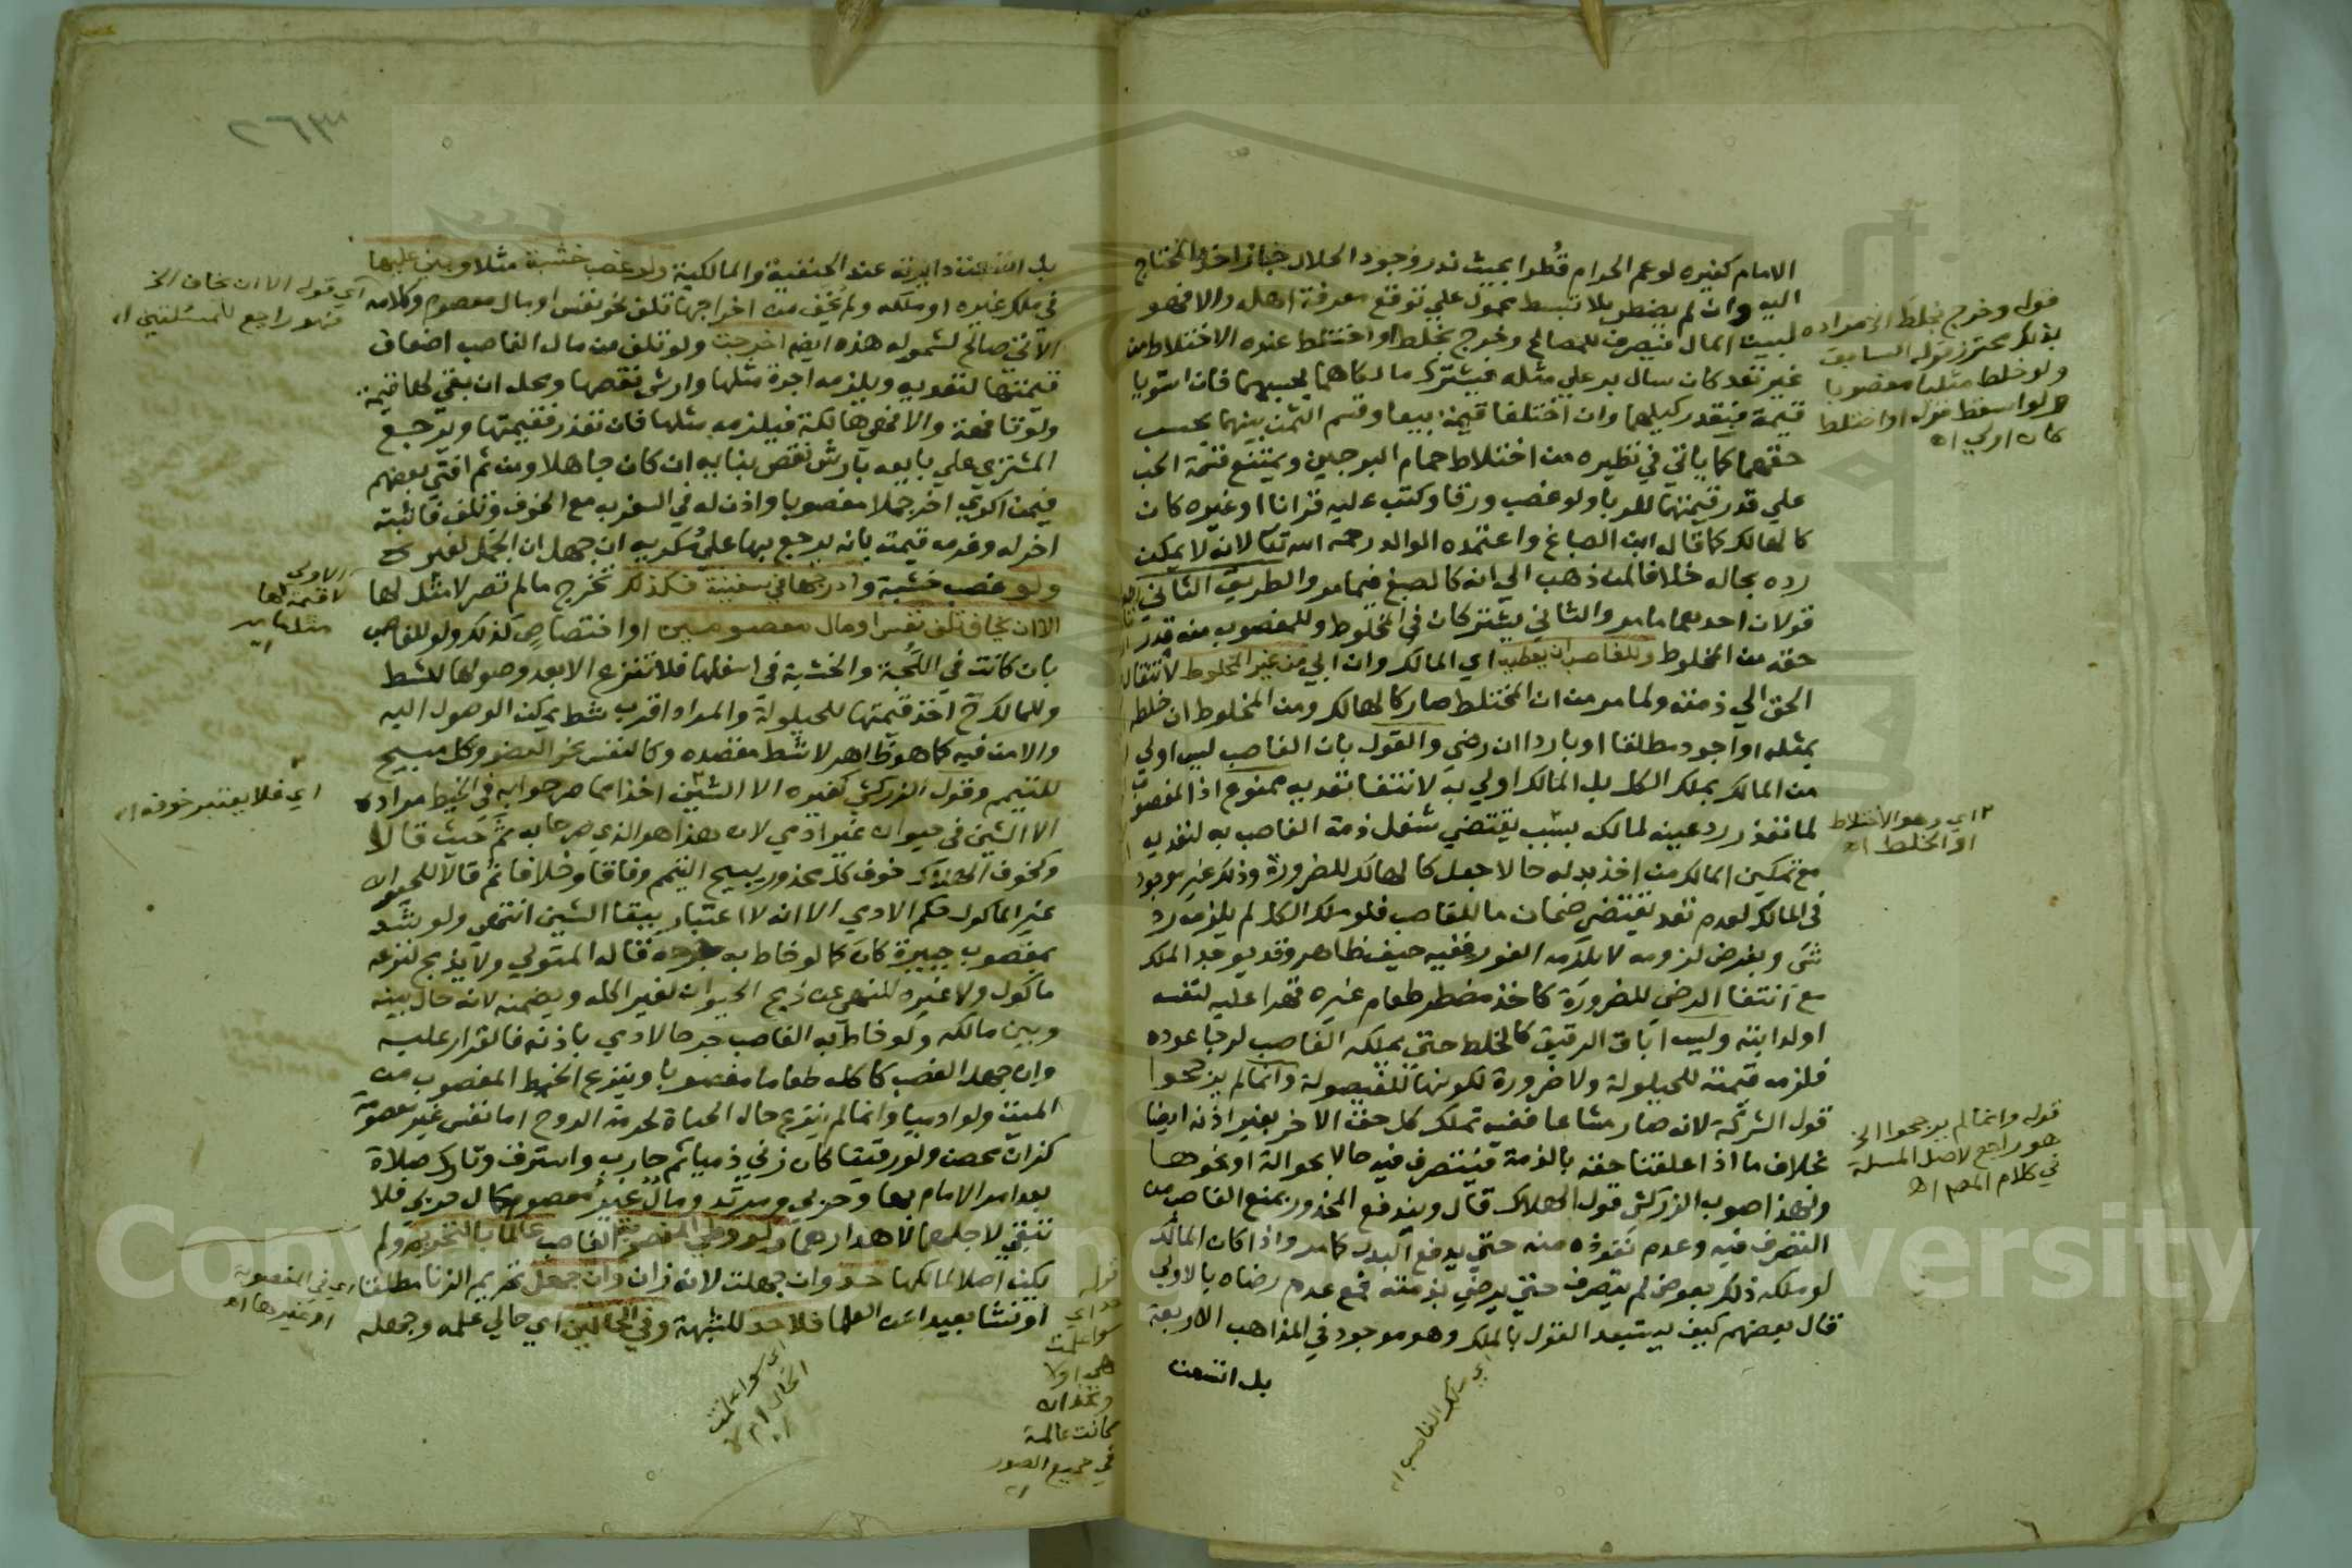 الامام كغيره لو عم الحرام قطرا بحيث ندر وجود الحلال جاز اخذ المحتاج
اليه وان لم يضطر بلا تبسط محمول علي توقع معرفة اهله والا فهو
لبيت المال فيصرف للمصالح وخرج بخلط او اختلط عنده الاختلاط من
غير تعد كان سال بر علي مثله فيشترك مالكاهما بحسبهما فان استويا
قيمة فبقدر كيلهما وان اختلفا قيمة بيعا وقسم الثمن بينهما بحسب
حقهما كما ياتي في نظيره من اختلاط حمام البرجين ويمتنع قسمة الحب
علي قدر قيمتهما للربا ولو غصب ورقا وكتب عليه قرانا او غيره كان
كالهالك كما قاله ابن الصباغ واعتمده الوالد رحمه الله تعا لانه لا يمكن
رده بحاله خلافا لمن ذهب الي انه كالصبغ فيما مر والطريق الثاني
قولان احدهما ما مر والثاني يشتركان في المخلوط وللمغصوب منه قدر
حقه من المخلوط وللغاصب ان يعطيه اي المالك وان ابي من غير المخلوط لانتقال
الحق الي ذمته ولما مر من ان المختلط صار كالهالك ومن المخلوط ان خلطه
بمثله او اجود مطلقا او باردا ان رضي والقول بان الغاصب ليس اولي
من المالك بملك الكل بل المالك اولي به لانتفا تعديه ممنوع اذ المغصوب
لما تعذر رد عينه لمالكه بسبب يقتضي شغل ذمة الغاصب به لتعديه
مع تمكين المالك من اخذ بدله حالا جعل كالهالك للضرورة وذلك غير موجود
في المالك لعدم تعد يقتضي ضمان ما للغاصب فلو ملك الكل لم يلزمه رد
شي وبفرض لزومه لا يلزمه الفور ففيه حيف ظاهر وقد يوجد الملك
مع انتفا الرضي للضرورة كاخذ مضطر طعام غيره قهرا عليه لنفسه
او لدابته وليس اباق الرقيق كالخلط حتي يملكه الغاصب لرجا عوده
فلزمه قيمته للحيلولة ولا ضرورة لكونها للفيصولة وانما لم يرجحوا
قول الشركة لانه صار مشاعا ففيه تملك كل حق الاخر بغير اذنه ايضا
بخلاف ما اذا علقنا حقه بالذمة فيتصرف فيه حالا بحوالة او نحوها
ولهذا صوب الزركشي قول الهلاك قال ويندفع المحذور بمنع الغاصب من
التصرف فيه وعدم نفوذه منه حتي يدفع البدل كامر واذا كان المالك
لو ملكه ذلك بعوض لم يتصرف حتي يرضي بذمته فمع عدم رضاه بالاولي
قال بعضهم كيف يستبعد القول بالملك وهو موجود في المذاهب الاربعة
بل اتسعت
اي ملك الغاصب اه
قوله وخرج بخلط الخ مراده
بذلك محترز قوله السابق
ولو خلط مثليا مغصوبا
ولو اسقط قوله او اختلط
كان اولي اه
اي وهو الاختلاط
او الخلط اه
قوله وانما لم يرجحوا الخ
هو راجع لاصل المسلة
في كلام المص اه
٢٦٣
بل اتسعت دايرته عند الحنفية والمالكية ولو غصب خشبة مثلا وبني عليها
في ملك غيره او ملكه ولم يخف من اخراجها تلف نحو نفس او مال معصوم وكلامه
الاتي صالح لشموله هذه ايضا اخرجت ولو تلف من مال الغاصب اضعاف
قيمتها لتعديه ويلزمه اجرة مثلها وارش نقصها ومحله ان بقي لها قيمة
ولو تافهة والا فهي هالكة فيلزمه مثلها فان تعذر فقيمتها ويرجع
المشتري علي بايعه بارش نقص بنايه ان كان جاهلا ومن ثم افتي بعضهم
فيمن اكري اخر جملا مغصوبا واذن له في السفر به مع الخوف وتلف فاثبته
اخر له وغرمه قيمته بانه يرجع بها علي مكريه ان جهل ان الجمل لغيره
ولو غصب خشبة وادرجها في سفينة فكذلك تخرج ما لم تصر لا مثل لها
الا ان يخاف تلف نفس او مال معصومين او اختصاص كذلك ولو للغاصب
بان كانت في اللجة والخشبة في اسفلها فلا تنزع الا بعد وصولها للشط
وللمالك ح اخذ قيمتها للحيلولة والمراد اقرب شط يمكن الوصول اليه
والامن فيه كما هو ظاهر لا شط مقصده وكالنفس نحو العضو وكل مبيح
للتيمم وقول الزركشي كغيره الا الشين اخذا مما صرحوا به في الخيط مراده
الا الشين في حيوان غير ادمي لان هذا هو الذي صرحا به ثم حيث قالا
وكخوف الهلاك خوف كل محذور يبيح التيمم وفاقا وخلافا ثم قالا للحيوان
غير الماكول حكم الادمي الا انه لا اعتبار ببقا الشين انتهي ولو شد
بمغصوب جبيرة كان كما لو خاط به جرحه قاله المتولي ولا يذبح لنزعه
ماكول ولا غيره للنهي عن ذبح الحيوان لغير اكله ويضمنه لانه حال بينه
وبين مالكه ولو خاط به الغاصب جرحا لادمي باذنه فالقرار عليه
وان جهل الغصب كاكله طعاما مغصوبا وينزع الخيط المغصوب من
الميت ولو ادميا وانما لم ينزع حال الحياة لحرمة الروح اما نفس غير معصومة
كزان محصن ولو رقيقا كان زني ذميا ثم حارب واسترق وتارك صلاة
بعد امر الامام بها وحربي ومرتد ومال غير معصوم كمال حربي فلا
تبقي لاجلهما لاهدارهما ولو وطي المغصوبة الغاصب عالما بالتحريم ولم
يكن اصلا لمالكها حد وان جهلت لانه زان وان جهل تحريم الزنا مطلقا
او نشا بعيدا عن العلما فلا حد للشبهة وفي الحالين اي حالي علمه وجهله
اي قوله الا ان يخاف الخ
فهو راجع للمسئلتين اه
الاولي
لا قيمة لها
اي فلا يعتبر خوفه اه
اي في المغصوبة
او غيرها اه
اي سوا علمت
الحال ام لا
اه
قوله
حد اي
سوا علمت
هي او لا
كانت عالمة
في جميع الصور
اه
Copy University